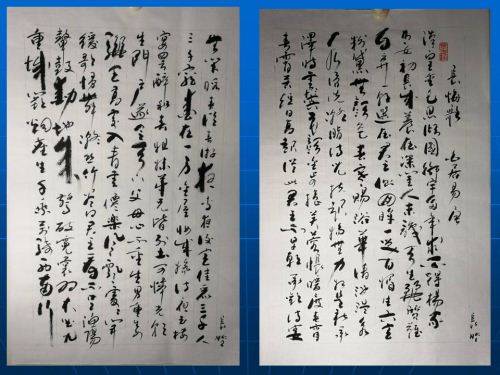 長恨歌 白居易 唐
漢皇重色思傾國御宇多年求不得楊家
有女初長成養在深閨人未識天生麗質難
自棄一朝選在君王側回眸一笑百媚生六宮
粉黛無顏色春寒賜浴華清池溫泉
水滑洗凝脂侍兒扶起嬌無力始是新承
恩澤時雲鬢花顏金步搖芙蓉帳暖度春宵
春宵苦短日高起從此君王不早朝承歡侍宴
無閒暇春從春遊夜專夜後宮佳麗三千人
三千寵愛在一身金屋妝成嬌侍夜玉樓
宴罷醉和春姊妹弟兄皆列土可憐光彩
生門戶遂令天下父母心不重生男重生女
驪宮高處入青雲仙樂風飄處處聞
緩歌慢舞凝絲竹盡日君王看不足漁陽
鼙鼓動地來驚破霓裳羽衣曲九
重城闕煙塵生千乘萬騎西南行